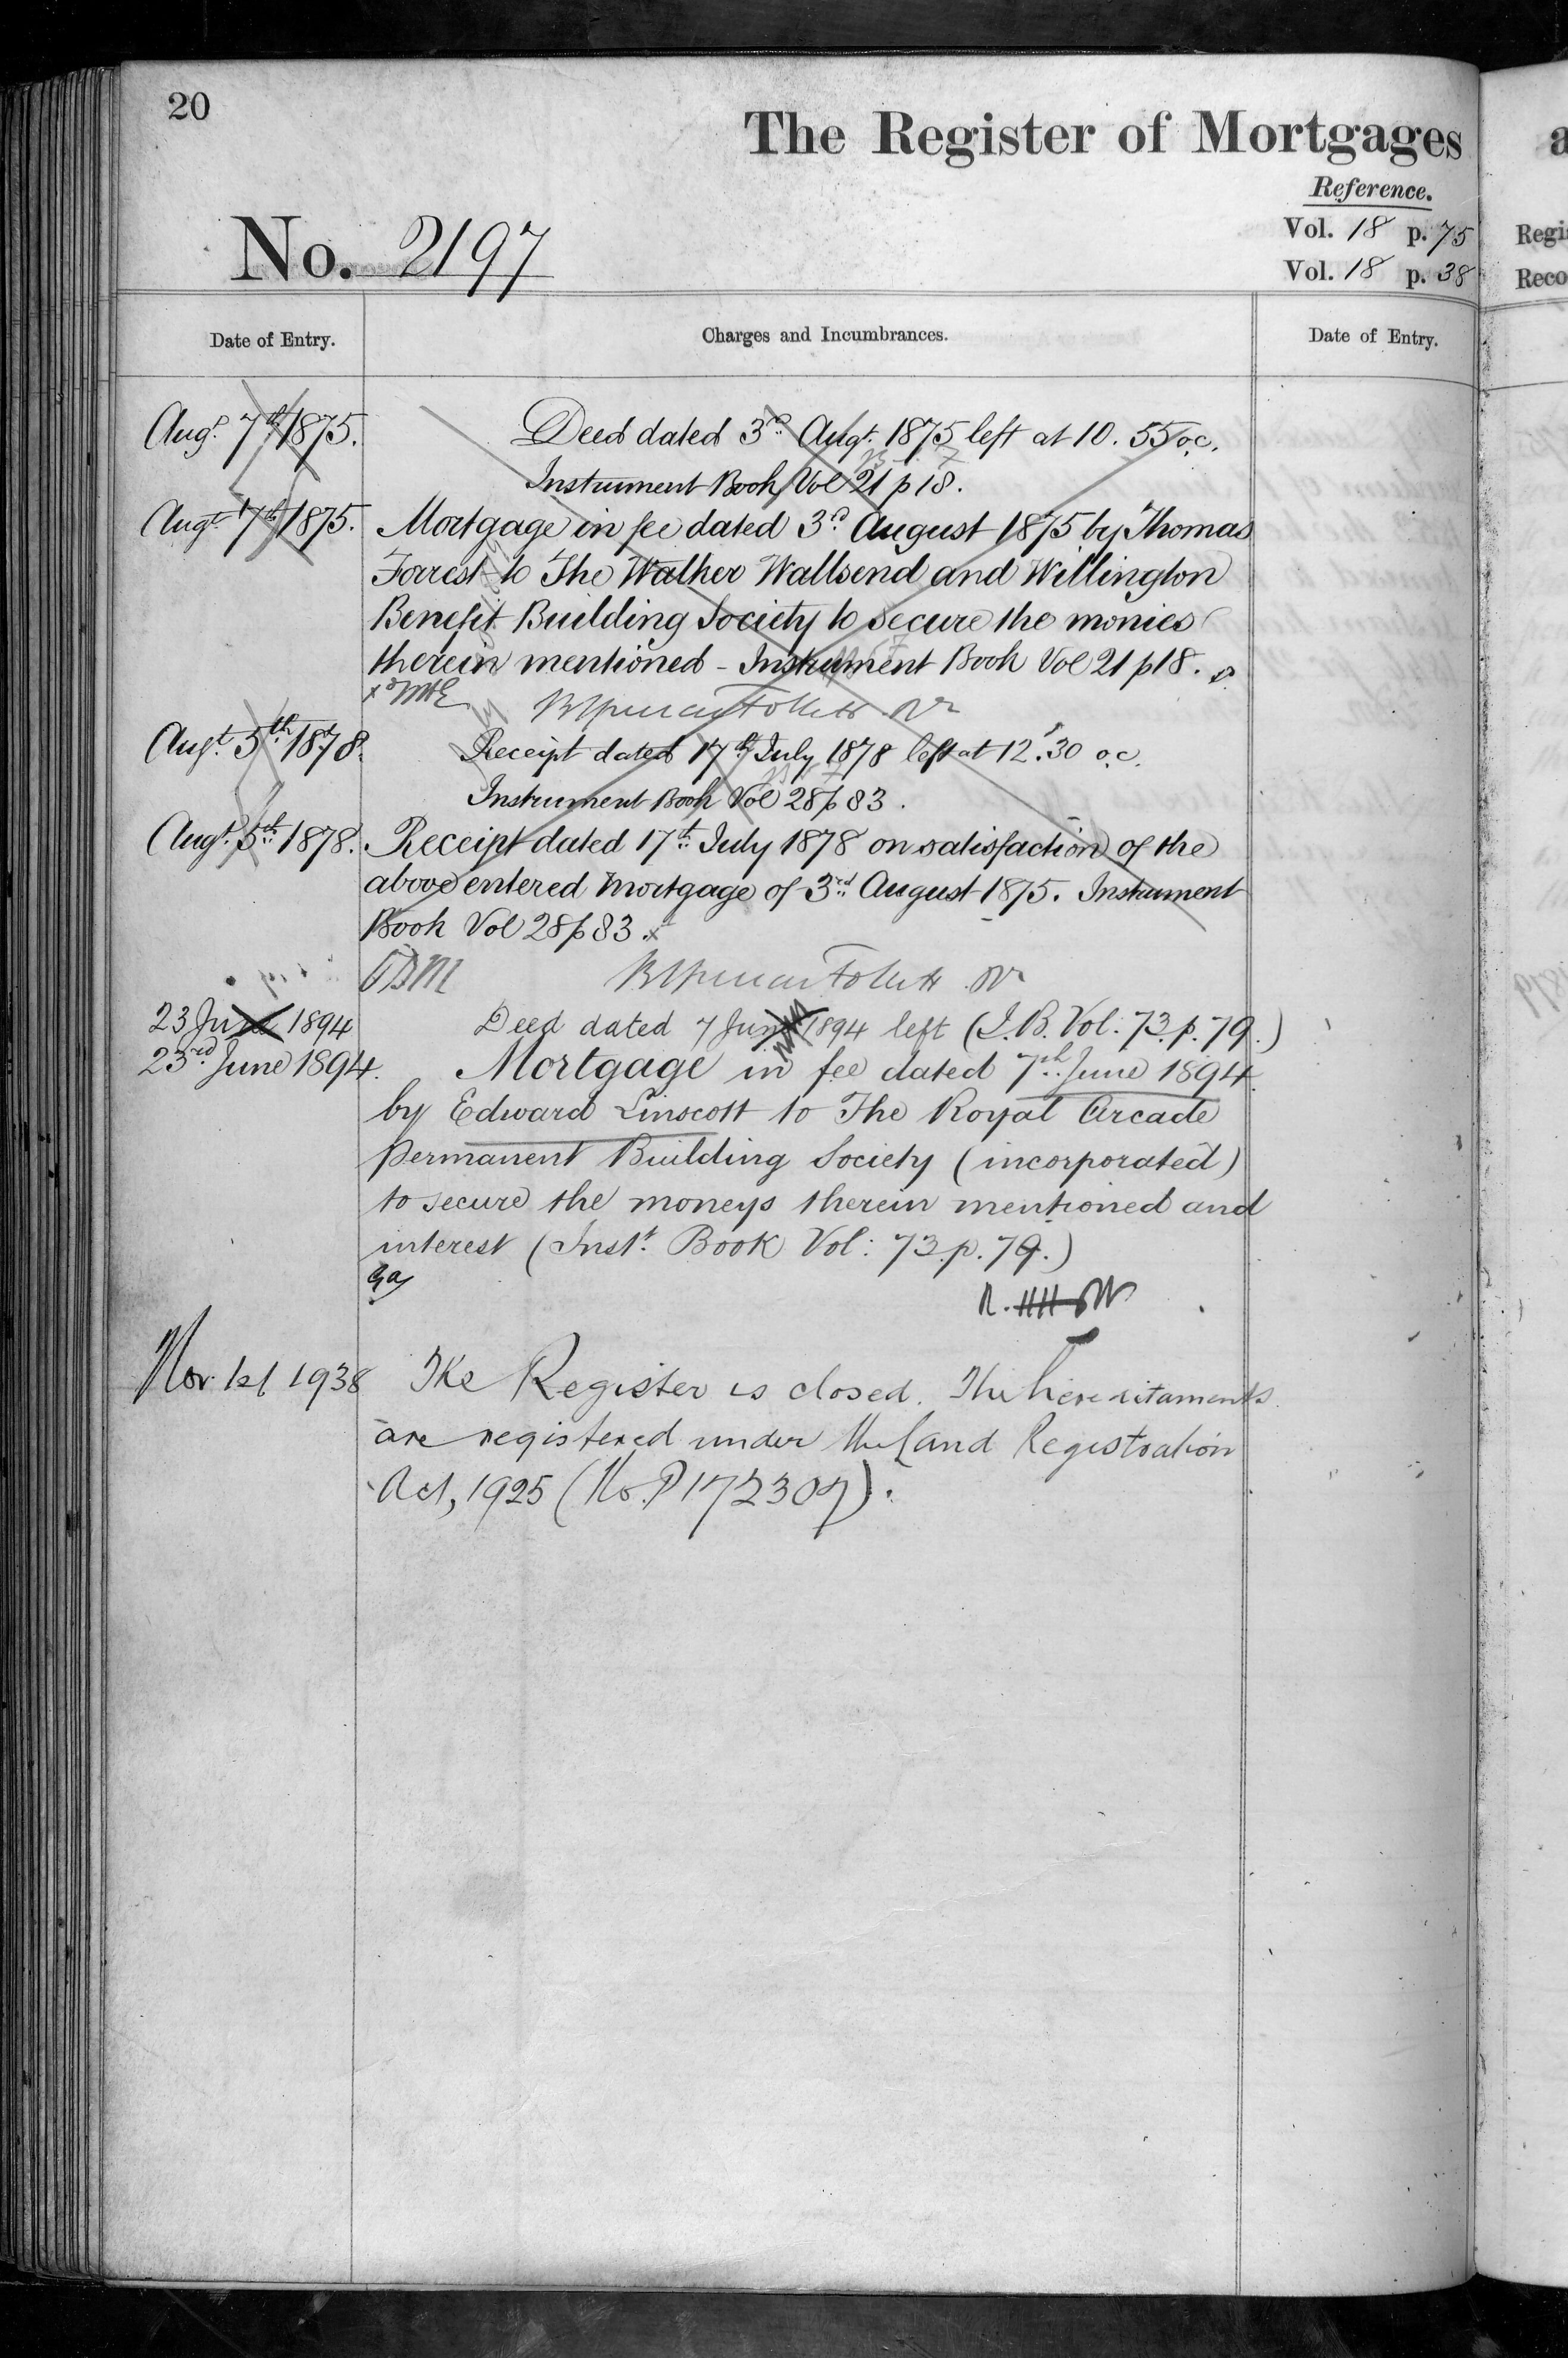 20
The Register of Mortgages
Reference.
No. 2197
Vol. 18 p. 75
Vol. 18 p. 38
Regis
Reco
Date of Entry.
Charges and Incumbrances.
Date of Entry.
Augt. 7th 1875.
Deed dated 3rd Augt. 1875 left at 10.55 o.c.
Instrument Book Vol 21 p 18.
Augt. 7th 1875.
Mortgage in fee dated 3rd August 1875 by Thomas
Forrest to The Walker Wallsend and Willington
Benefit Building Society to secure the monies
therein mentioned - Instrument Book Vol 21 p 18.
Augt. 5th 1878.
Receipt dated 17th July 1878 left at 12.30 o.c.
Instrument Book Vol 28 p 83.
Augt. 5th 1878.
Receipt dated 17th July 1878 on satisfaction of the
above entered Mortgage of 3rd August 1875. Instrument
Book Vol 28 p 83. x
23 June 1894
Deed dated 7 June 1894 left (I.B. Vol: 73. p. 79.)
23rd June 1894.
Mortgage in fee dated 7th June 1894
by Edward Linscott to The Royal Arcade
Permanent Building Society (incorporated)
to secure the moneys therein mentioned and
interest (Instt. Book Vol: 73. p. 79.)
Nov. 1st 1938
The Register is closed. The hereditaments
are registered under the Land Registration
Act, 1925 (No. P172307).